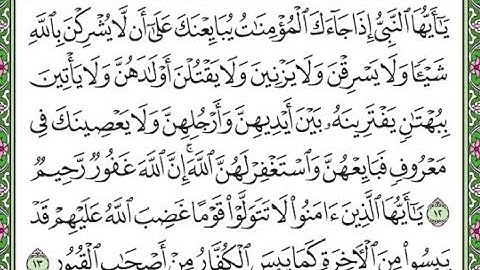 يَـٰٓأَيُّهَا ٱلنَّبِىُّ إِذَا جَآءَكَ ٱلْمُؤْمِنَـٰتُ يُبَايِعْنَكَ عَلَىٰٓ أَن لَّا يُشْرِكْنَ بِٱللَّهِ
شَيْـًٔا وَلَا يَسْرِقْنَ وَلَا يَزْنِينَ وَلَا يَقْتُلْنَ أَوْلَـٰدَهُنَّ وَلَا يَأْتِينَ
بِبُهْتَـٰنٍ يَفْتَرِينَهُۥ بَيْنَ أَيْدِيهِنَّ وَأَرْجُلِهِنَّ وَلَا يَعْصِينَكَ فِى
مَعْرُوفٍ فَبَايِعْهُنَّ وَٱسْتَغْفِرْ لَهُنَّ ٱللَّهَ ۖ إِنَّ ٱللَّهَ غَفُورٌ رَّحِيمٌ
١٢ يَـٰٓأَيُّهَا ٱلَّذِينَ ءَامَنُوا۟ لَا تَتَوَلَّوْا۟ قَوْمًا غَضِبَ ٱللَّهُ عَلَيْهِمْ قَدْ
يَئِسُوا۟ مِنَ ٱلْـَٔاخِرَةِ كَمَا يَئِسَ ٱلْكُفَّارُ مِنْ أَصْحَـٰبِ ٱلْقُبُورِ ١٣